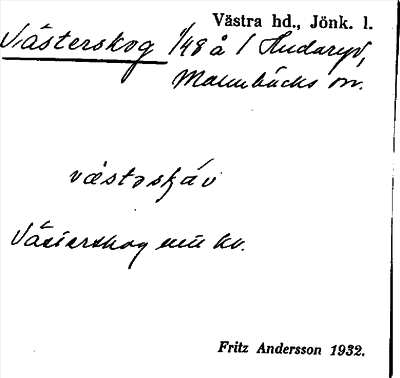 Västra hd., Jönk. l.
Västerskog 1/48 å 1 Hudaryd,
Malmbäcks sn.
västəskåv
Västerskog enl. kv.
Fritz Andersson 1932.